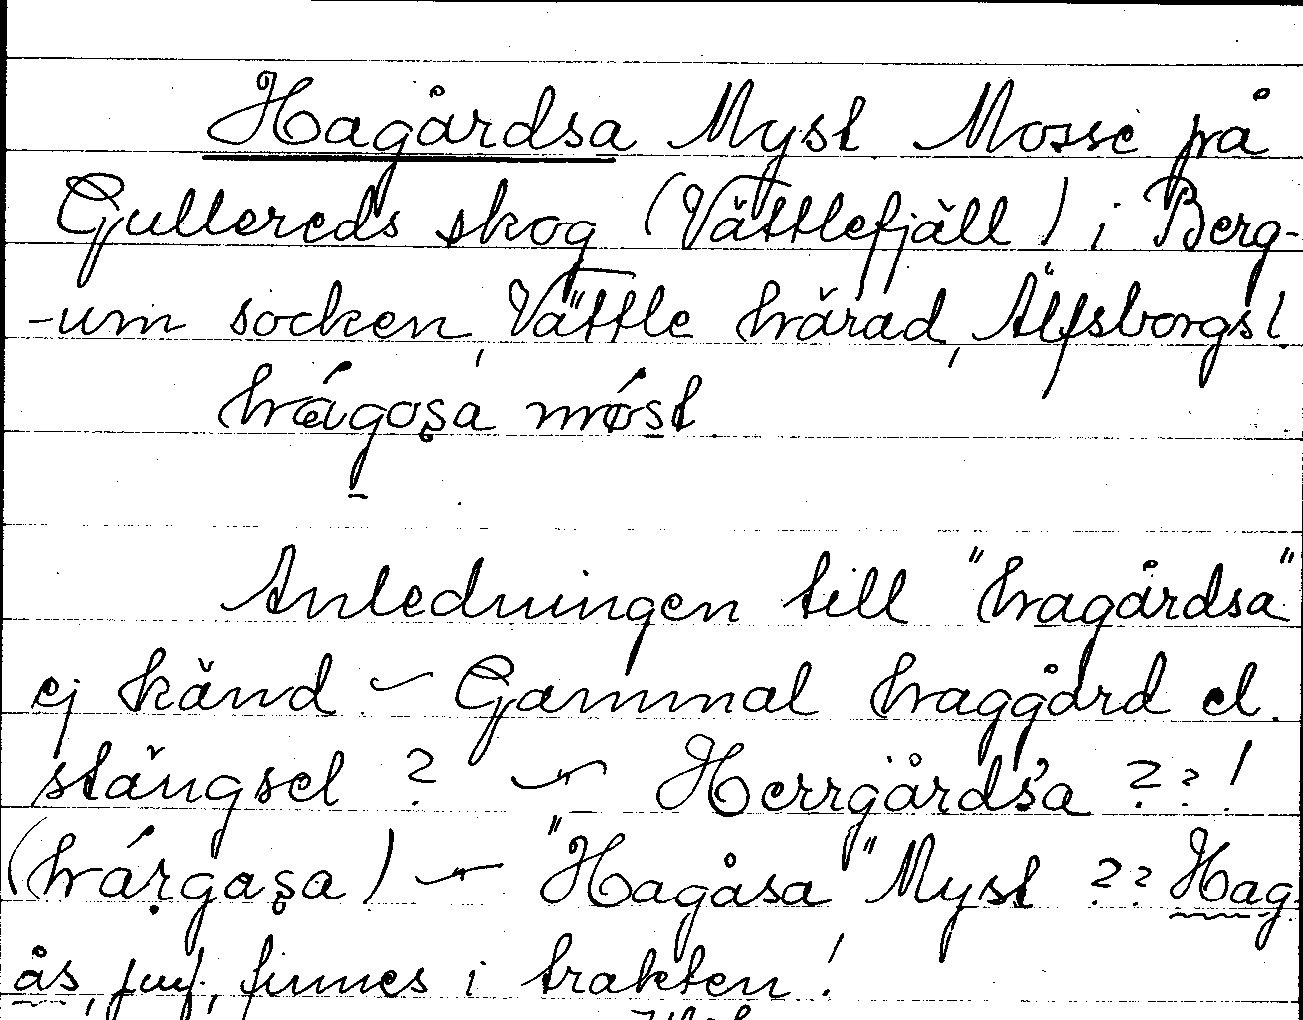 Hagårdsa Myst Mosse på
Gullereds skog (Vättlefjäll) i Berg-
-um socken, Vättle härad, Älfsborgs l.
hágoʂa mǿst
Anledningen till "hagårdsa"
ej känd – Gammal haggård el.
stängsel ? – Herrgårdsa ??!
(hárgaʂa) – "Hagåsa" Myst ?? Hag
ås, finnes i trakten!